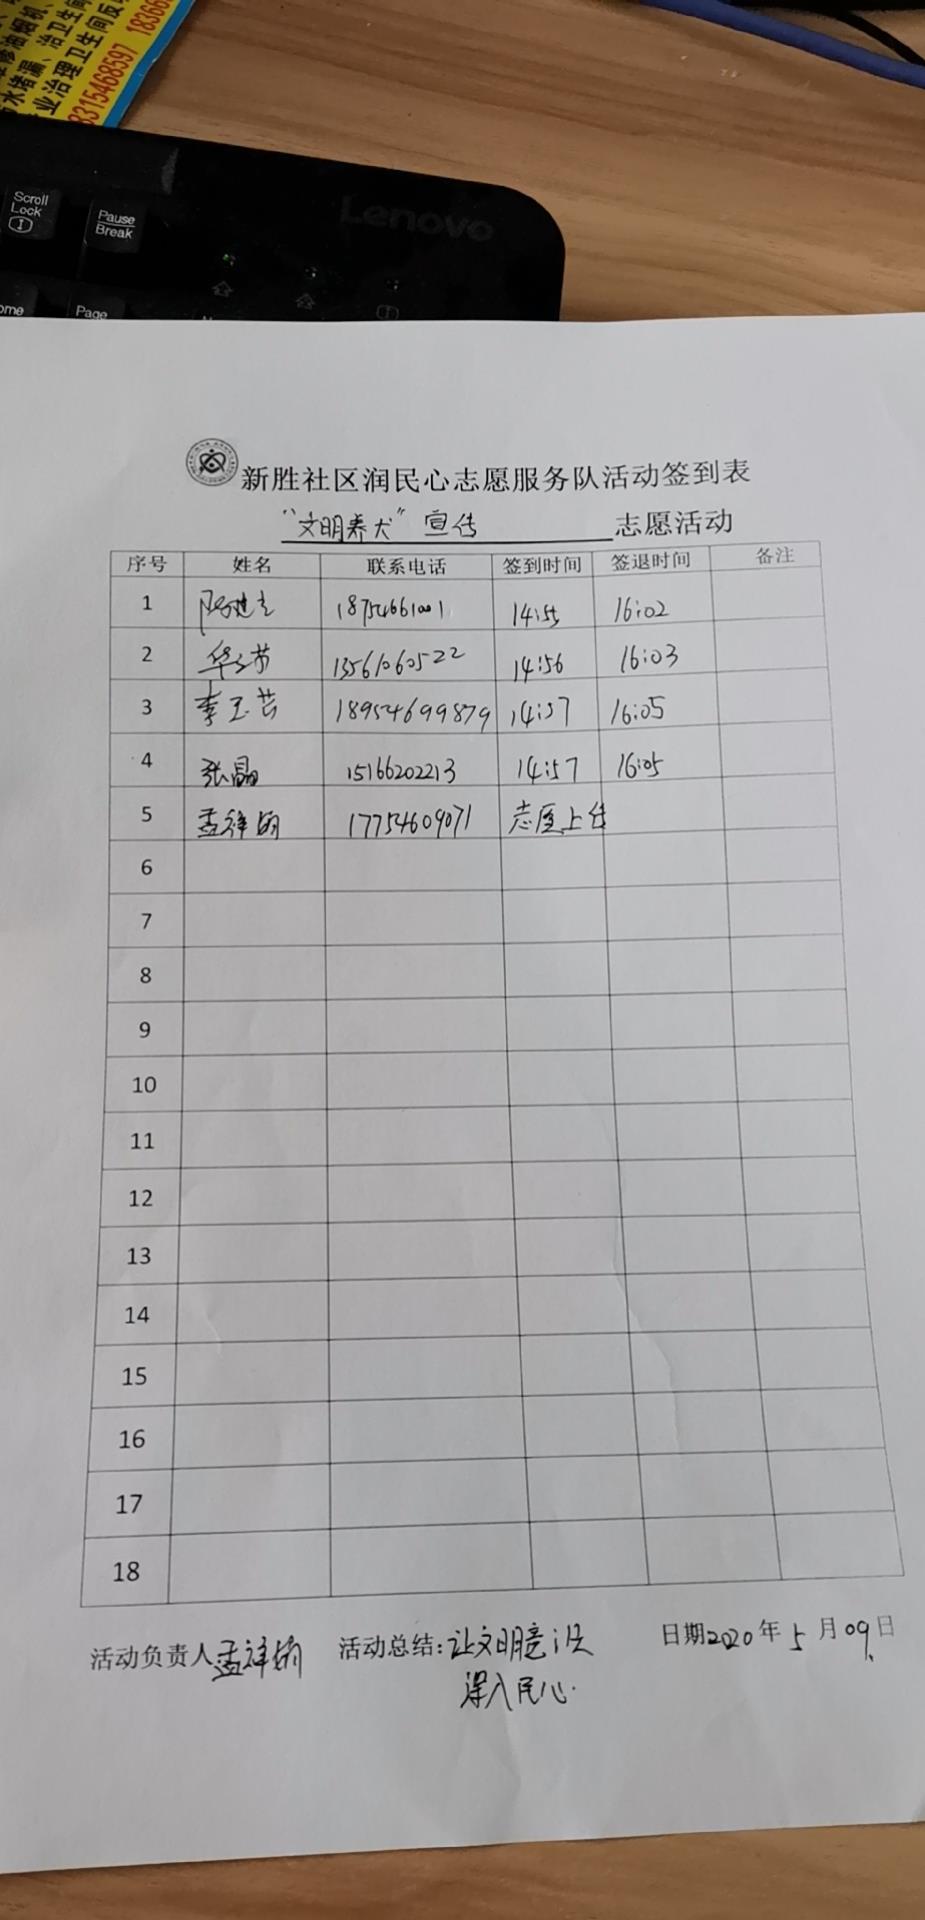 8315468597 1836
Scroll Lock
Pause Break
Lenovo
Page
新胜社区润民心志愿服务队活动签到表
“文明养犬”宣传 志愿活动
序号 姓名 联系电话 签到时间 签退时间 备注
1 18754661001 14:55 16:02
2 13561060522 14:56 16:03
3 李玉芸 18954699879 14:57 16:05
4 张晶 15166202213 14:57 16:05
5 孟祥娟 17754609071 志愿上传
6
7
8
9
10
11
12
13
14
15
16
17
18
活动负责人孟祥娟 活动总结:让文明意识 日期2020年5月09日
深入民心.